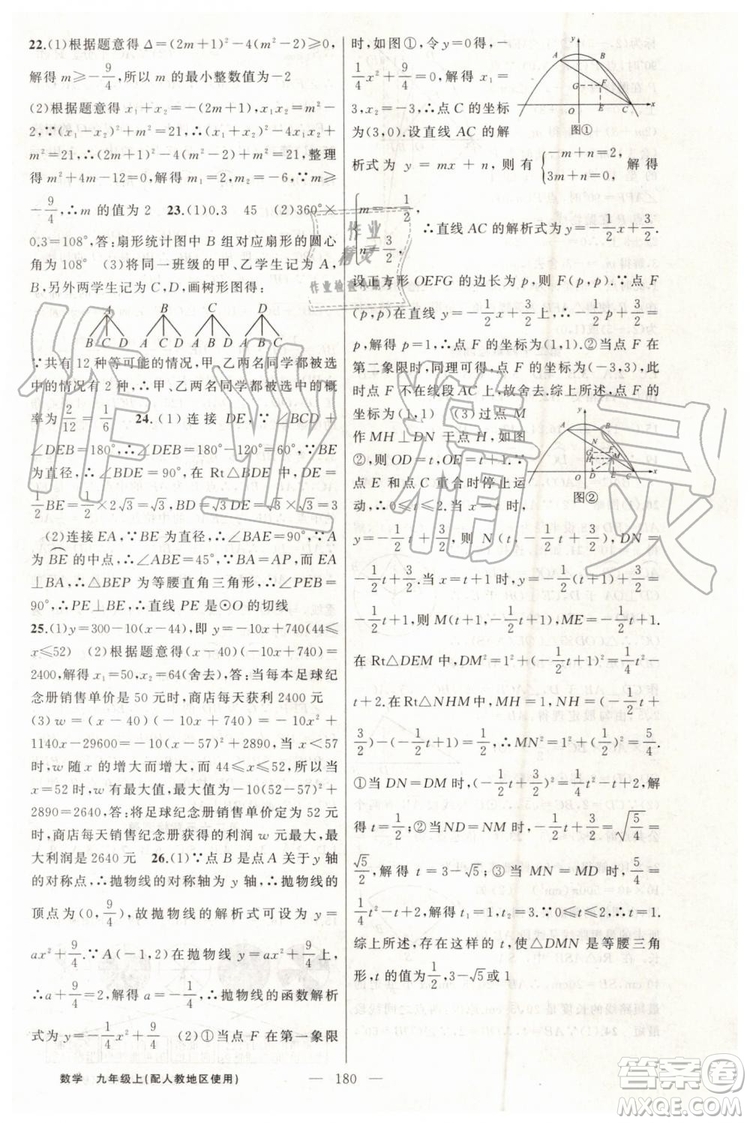 22.(1)根据题意得 Δ=(2m+1)²-4(m²-2)≥0,
解得 m≥-9/4,所以 m 的最小整数值为-2
(2)根据题意得 x₁+x₂=-(2m+1),x₁x₂=m²-
2,∵(x₁-x₂)²+m²=21,∴(x₁+x₂)²-4x₁x₂+
m²=21,∴(2m+1)²-4(m²-2)+m²=21,整理
得 m²+4m-12=0,解得 m₁=2,m₂=-6,∵m≥
-9/4,∴m 的值为 2 23.(1)0.3 45 (2)360°×
0.3=108°,答:扇形统计图中 B 组对应扇形的圆心
角为 108° (3)将同一班级的甲、乙学生记为 A、
B,另外两学生记为 C、D,画树形图得:
A B C D
∵共有 12 种等可能的情况,甲、乙两名同学都被选
中的情况有 2 种,∴甲、乙两名同学都被选中的概
率为2/12=1/6 24.(1)连接 DE,∵∠BCD+
∠DEB=180°,∴∠DEB=180°-120°=60°,
∵BE 为直径,∴∠BDE=90°,在 Rt△BDE 中,DE=
1/2BE=1/2×2√3=√3,BD=√3DE=√3×√3=3
(2)连接 EA,∵BE 为直径,∴∠BAE=90°,∵A
为BE的中点,∴∠ABE=45°,∵BA=AP,而 EA
⊥BA,∴△BEP 为等腰直角三角形,∴∠PEB=
90°,∴PE⊥BE,∴直线 PE 是⊙O 的切线
25.(1)y=300-10(x-44),即 y=-10x+740(44≤
x≤52) (2)根据题意得(x-40)(-10x+740)=
2400,解得 x₁=50,x₂=64(舍去),答:当每本足球纪
念册销售单价是 50 元时,商店每天获利 2400 元
(3)w=(x-40)(-10x+740)=-10x²+
1140x-29600=-10(x-57)²+2890,当 x<57
时,w 随 x 的增大而增大,而 44≤x≤52,∴当
x=52 时,w 有最大值,最大值为-10(52-57)²+
2890=2640,答:将足球纪念册销售单价定为 52 元
时,商店每天销售纪念册获得的利润 w 元最大,最
大利润是 2640 元 26.(1)∵点 B 是点 A 关于 y 轴
的对称点,∴抛物线的对称轴为 y 轴,∴抛物线的
顶点为(0,9/4),故抛物线的解析式可设为 y=
ax²+9/4.∵A(-1,2)在抛物线 y=ax²+9/4上,
∴a+9/4=2,解得 a=-1/4,∴抛物线的函数解析
式为 y=-1/4x²+9/4 (2)①当点 F 在第一象限
时,如图①,令 y=0 得,-
1/4x²+9/4=0,解得 x₁=
3,x₂=-3,∴点 C 的坐标
为(3,0).设直线 AC 的解
析式为 y=mx+n,则有{-m+n=2, 3m+n=0, 解得
{m=-1/2, n=3/2, ∴直线 AC 的解析式为 y=-1/2x+3/2.
图①
设正方形 OEFG 的边长为 p,则 F(p,p).∵点 F
(p,p)在直线 y=-1/2x+3/2上,∴-1/2p+3/2=p,
解得 p=1,∴点 F 的坐标为(1,1).②当点 F 在
第二象限时,同理可得,点 F 的坐标为(-3,3),此
时点 F 不在线段 AC 上,故舍去;综上所述,点 F
的坐标为(1,1) (3)过点 M
作 MH⊥DN 于点 H,如图
②,则 OD=t,OE=t+1.∵
点 E 和点 C 重合时停止运
动,∴0≤t≤2.当 x=t 时,y
图②
=-1/2t+3/2,则 N(t,-1/2t+3/2),DN=
-1/2t+3/2.当 x=t+1 时,y=-1/2(t+1)+3/2=
-1/2t+1,则 M(t+1,-1/2t+1),ME=-1/2t+1.
在 Rt△DEM 中,DM²=1²+(-1/2t+1)²=1/4t²-
t+2.在 Rt△NHM 中,MH=1,NH=(-1/2t+
3/2)-(-1/2t+1)=1/2,∴MN²=1²+(1/2)²=5/4.
①当 DN=DM 时,(-1/2t+3/2)²=1/4t²-t+2,解
得 t=1/2;②当 ND=NM 时,-1/2t+3/2=√(5/4)=
√5/2,解得 t=3-√5;③当 MN=MD 时,5/4=
1/4t²-t+2,解得 t₁=1,t₂=3.∵0≤t≤2,∴t=1.
综上所述,存在这样的 t,使△DMN 是等腰三角
形,t 的值为1/2,3-√5或 1
数学 九年级上(配人教地区使用)
— 180 —
作业精灵
答案圈
MXQE.COM